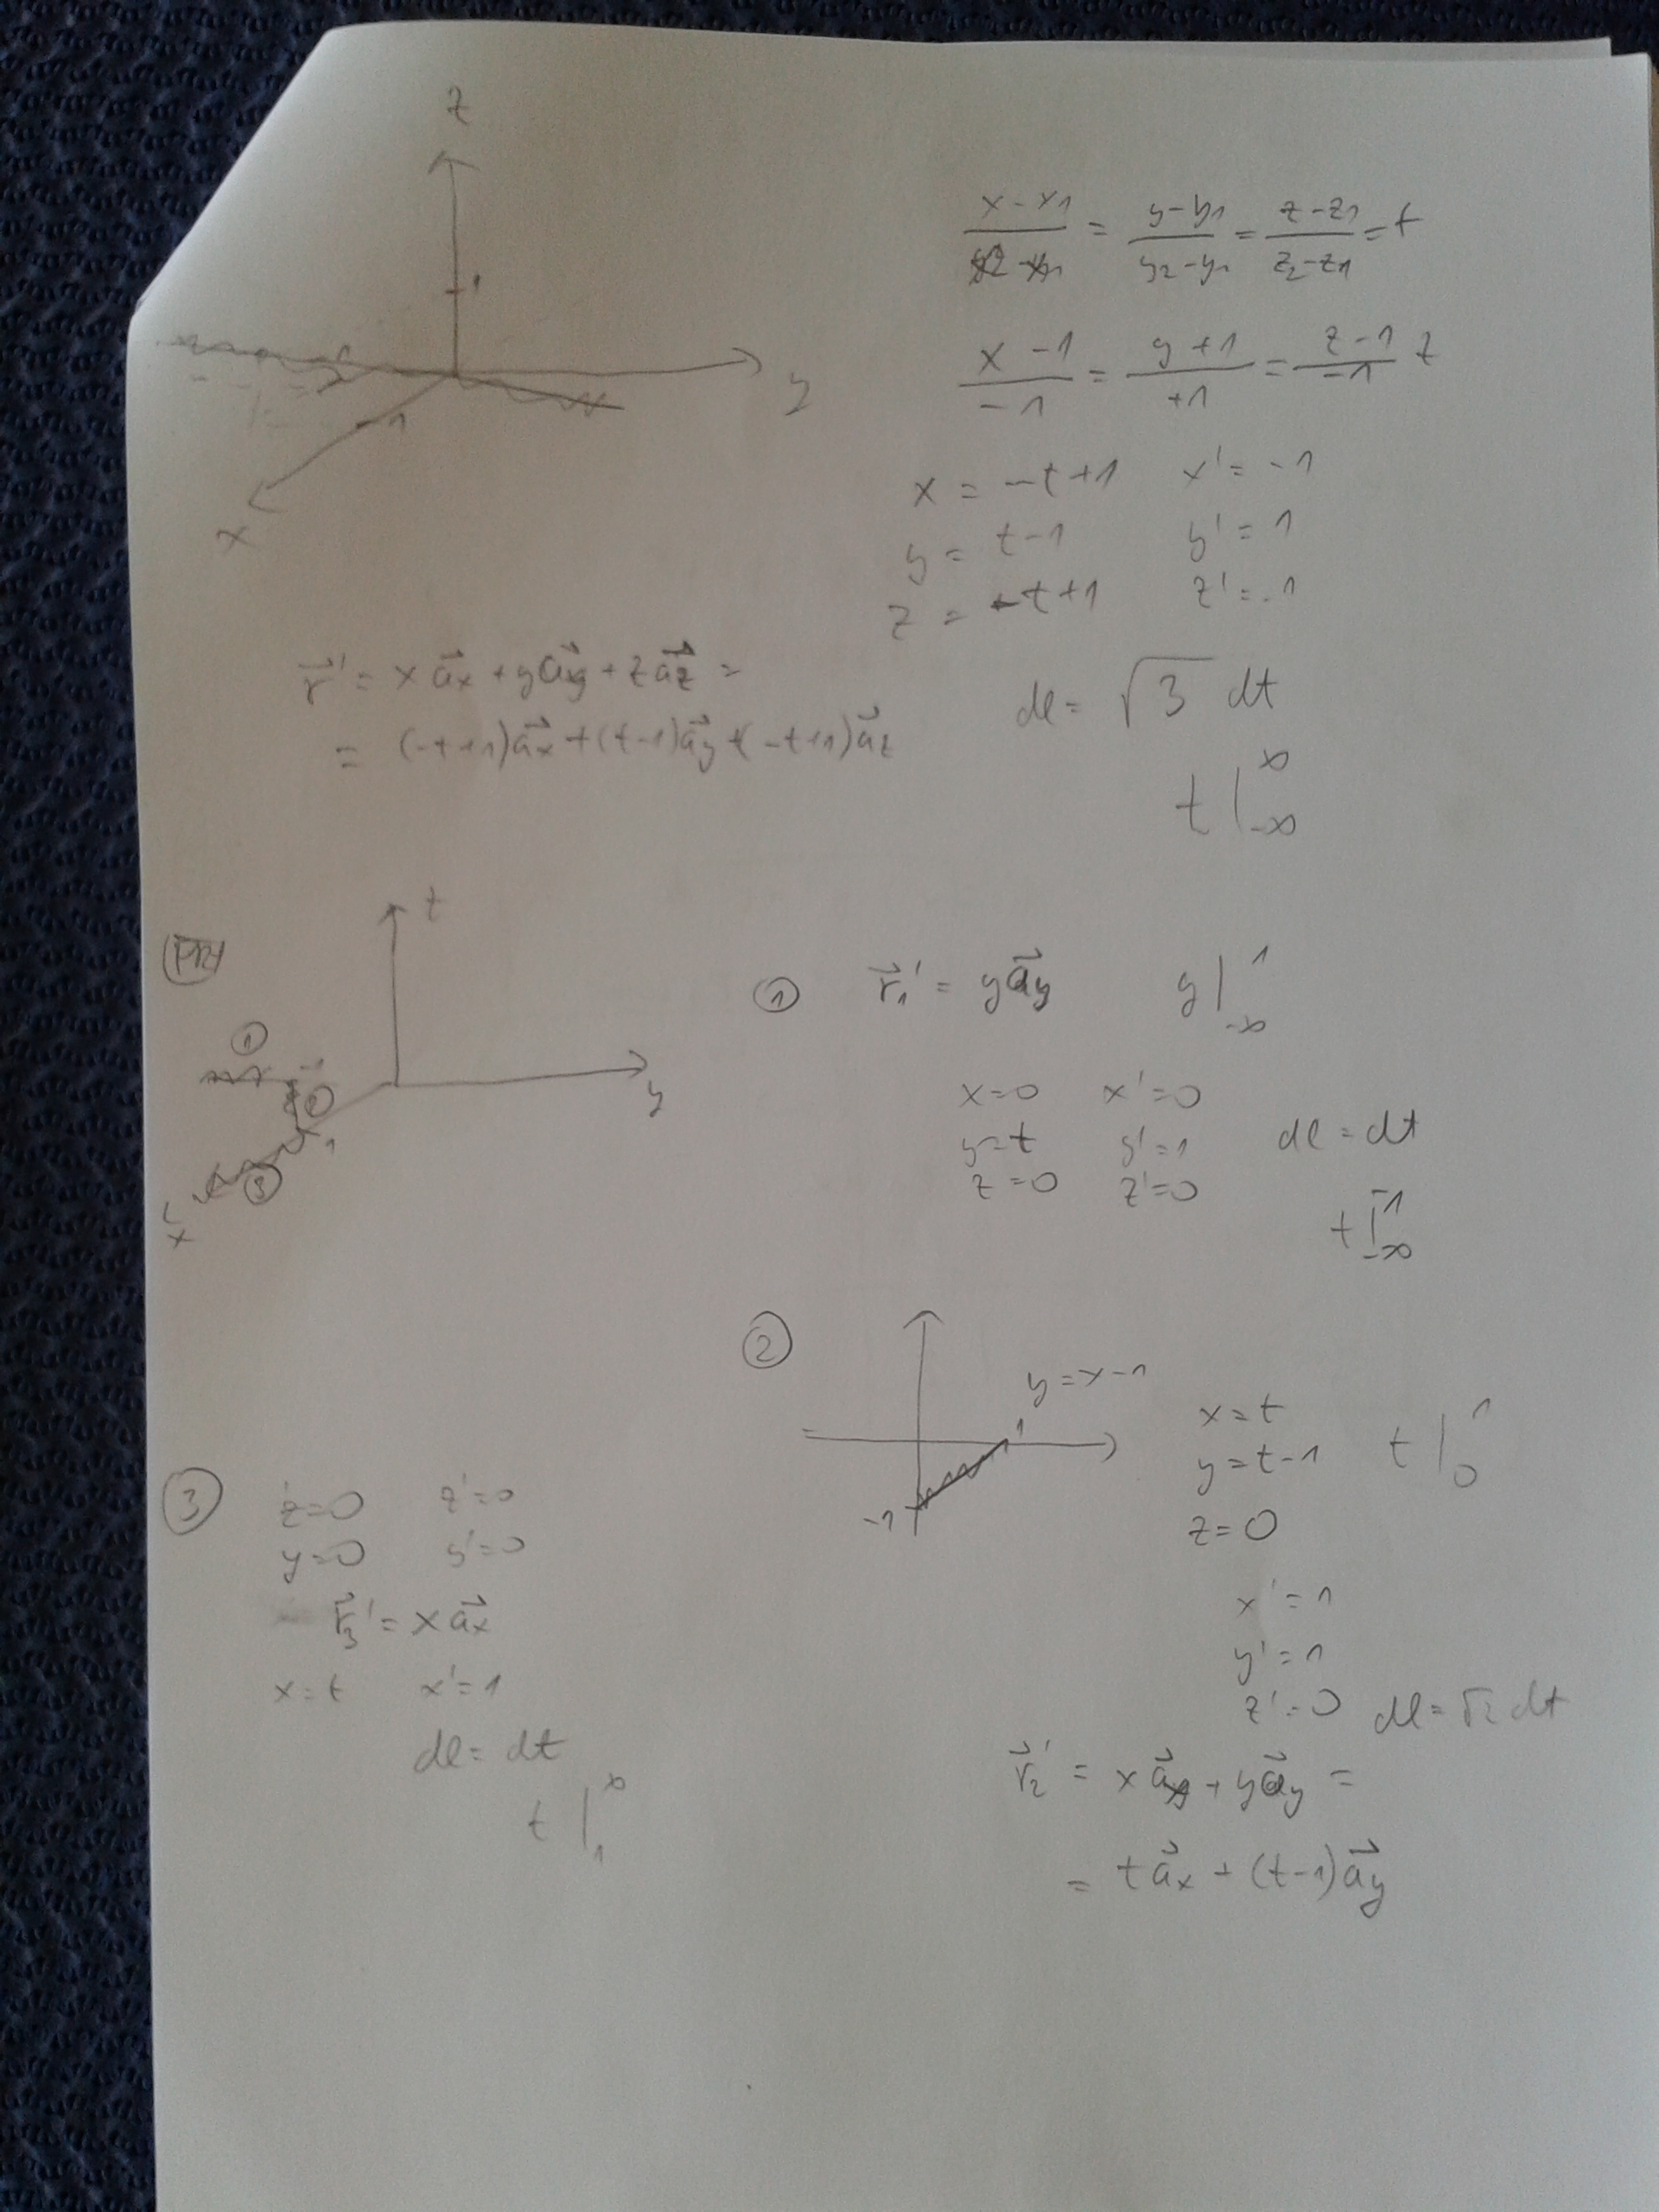 z
1
y
1
x
x - x1 / x2 - x1 = y - y1 / y2 - y1 = z - z1 / z2 - z1 = t
x - 1 / -1 = y + 1 / +1 = z - 1 / -1 t
x = -t+1 x' = -1
y = t-1 y' = 1
z = -t+1 z' = -1
r⃗' = x a⃗x + y a⃗y + z a⃗z =
= (-t+1)a⃗x + (t-1)a⃗y + (-t+1)a⃗z
dl = √3 dt
t |_{-∞}^{∞}
z
y
x
①
-1
②
1
③
① r⃗1' = y a⃗y y |_{-∞}^{1}
x=0 x'=0
y=t y'=1 dl = dt
z=0 z'=0
t |_{-∞}^{-1}
②
y = x-1
1
-1
x = t
y = t-1 t |_{0}^{1}
z = 0
x' = 1
y' = 1
z' = 0 dl = √2 dt
r⃗2' = x a⃗x + y a⃗y =
= t a⃗x + (t-1) a⃗y
③ z=0 z'=0
y=0 y'=0
r⃗3' = x a⃗x
x=t x'=1
dl = dt
t |_{1}^{∞}